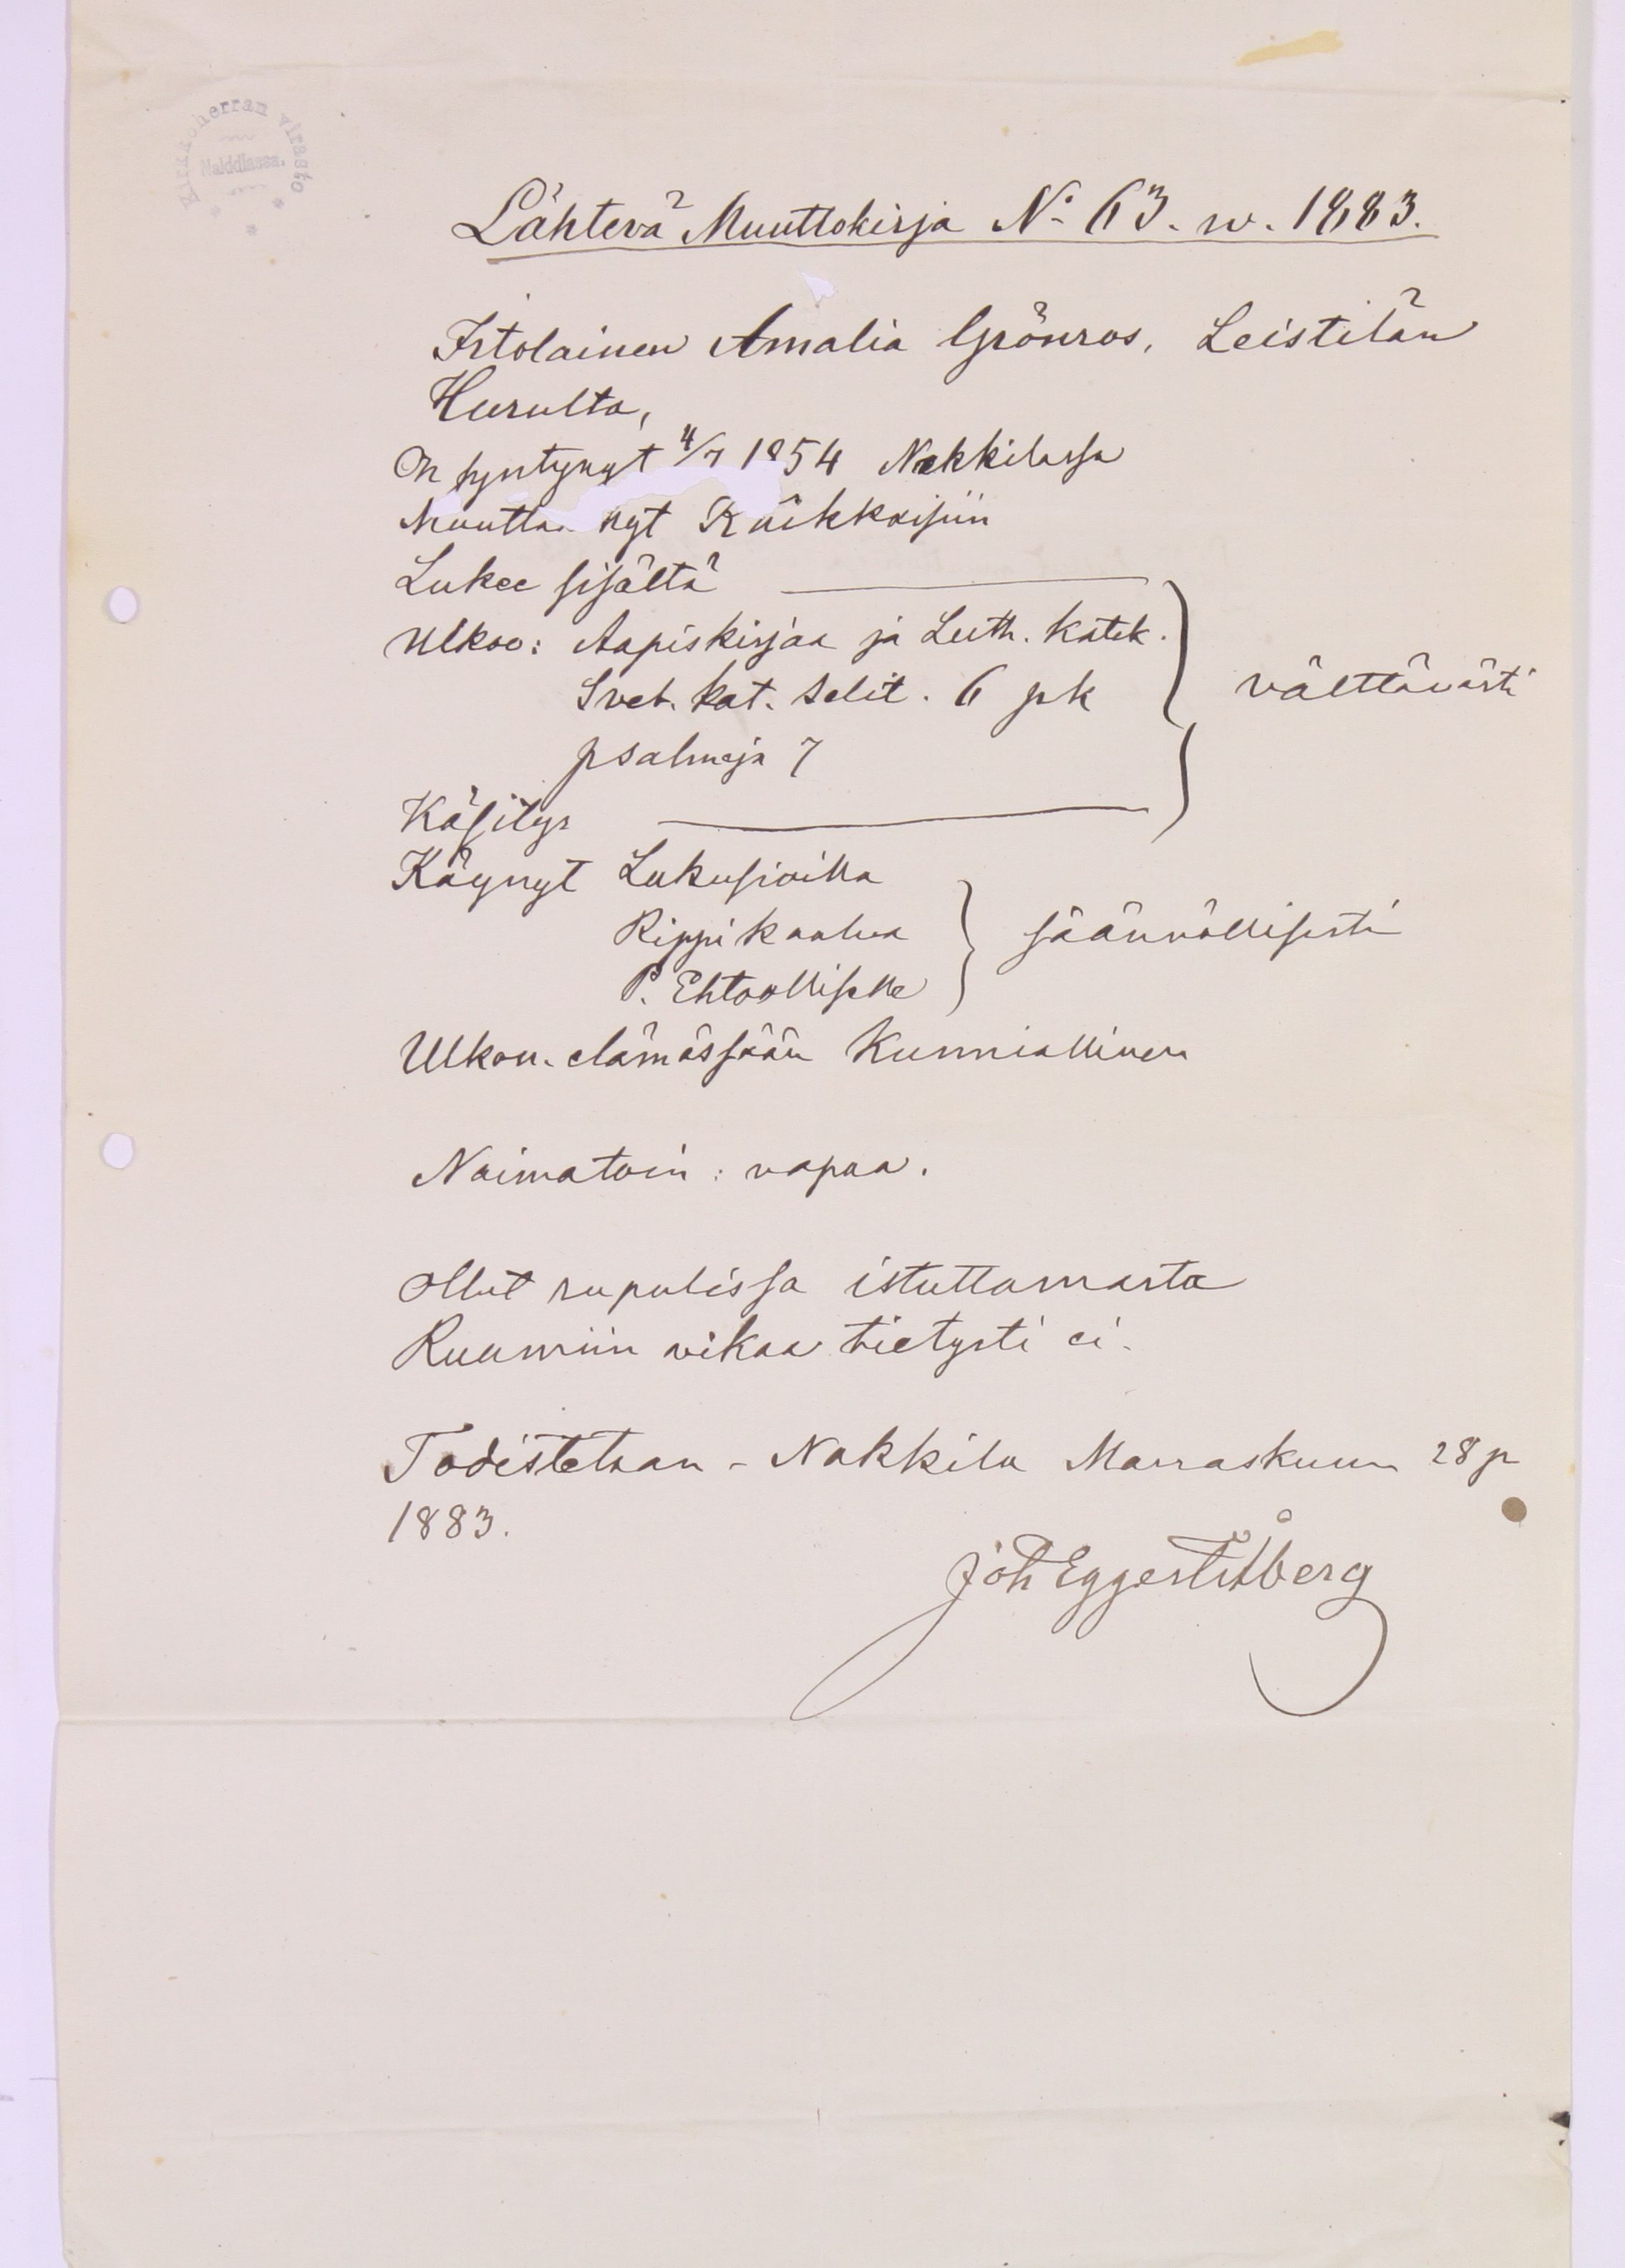 Kirkkoherran virasto
Nakkilassa.
Lähtevä Muuttokirja No 63. w. 1883.
Itolainen Amalia Grönros, Leistilän
Hurulta,
On syntynyt 4/7 1854 Nakkilassa
Muutta nyt
Lukee sisältä
Ulkoo: Aapiskirjaa ja Luth. Katek.
Sveb. kat. selit. 6 pk
psalmeja 7
välttävästi
Käsitys
Käynyt Lukusioilla
Rippikoulua
P. Ehtoollisella
säännöllisesti
Ulkon. elämässään Kunniallinen
Naimatoin: vapaa.
Ollut rupulissa istuttamasta
Ruumiin vikaa tietysti ei.
Todistetaan - Nakkila Marraskuun 28 p
1883.
Joh Eggert Åberg